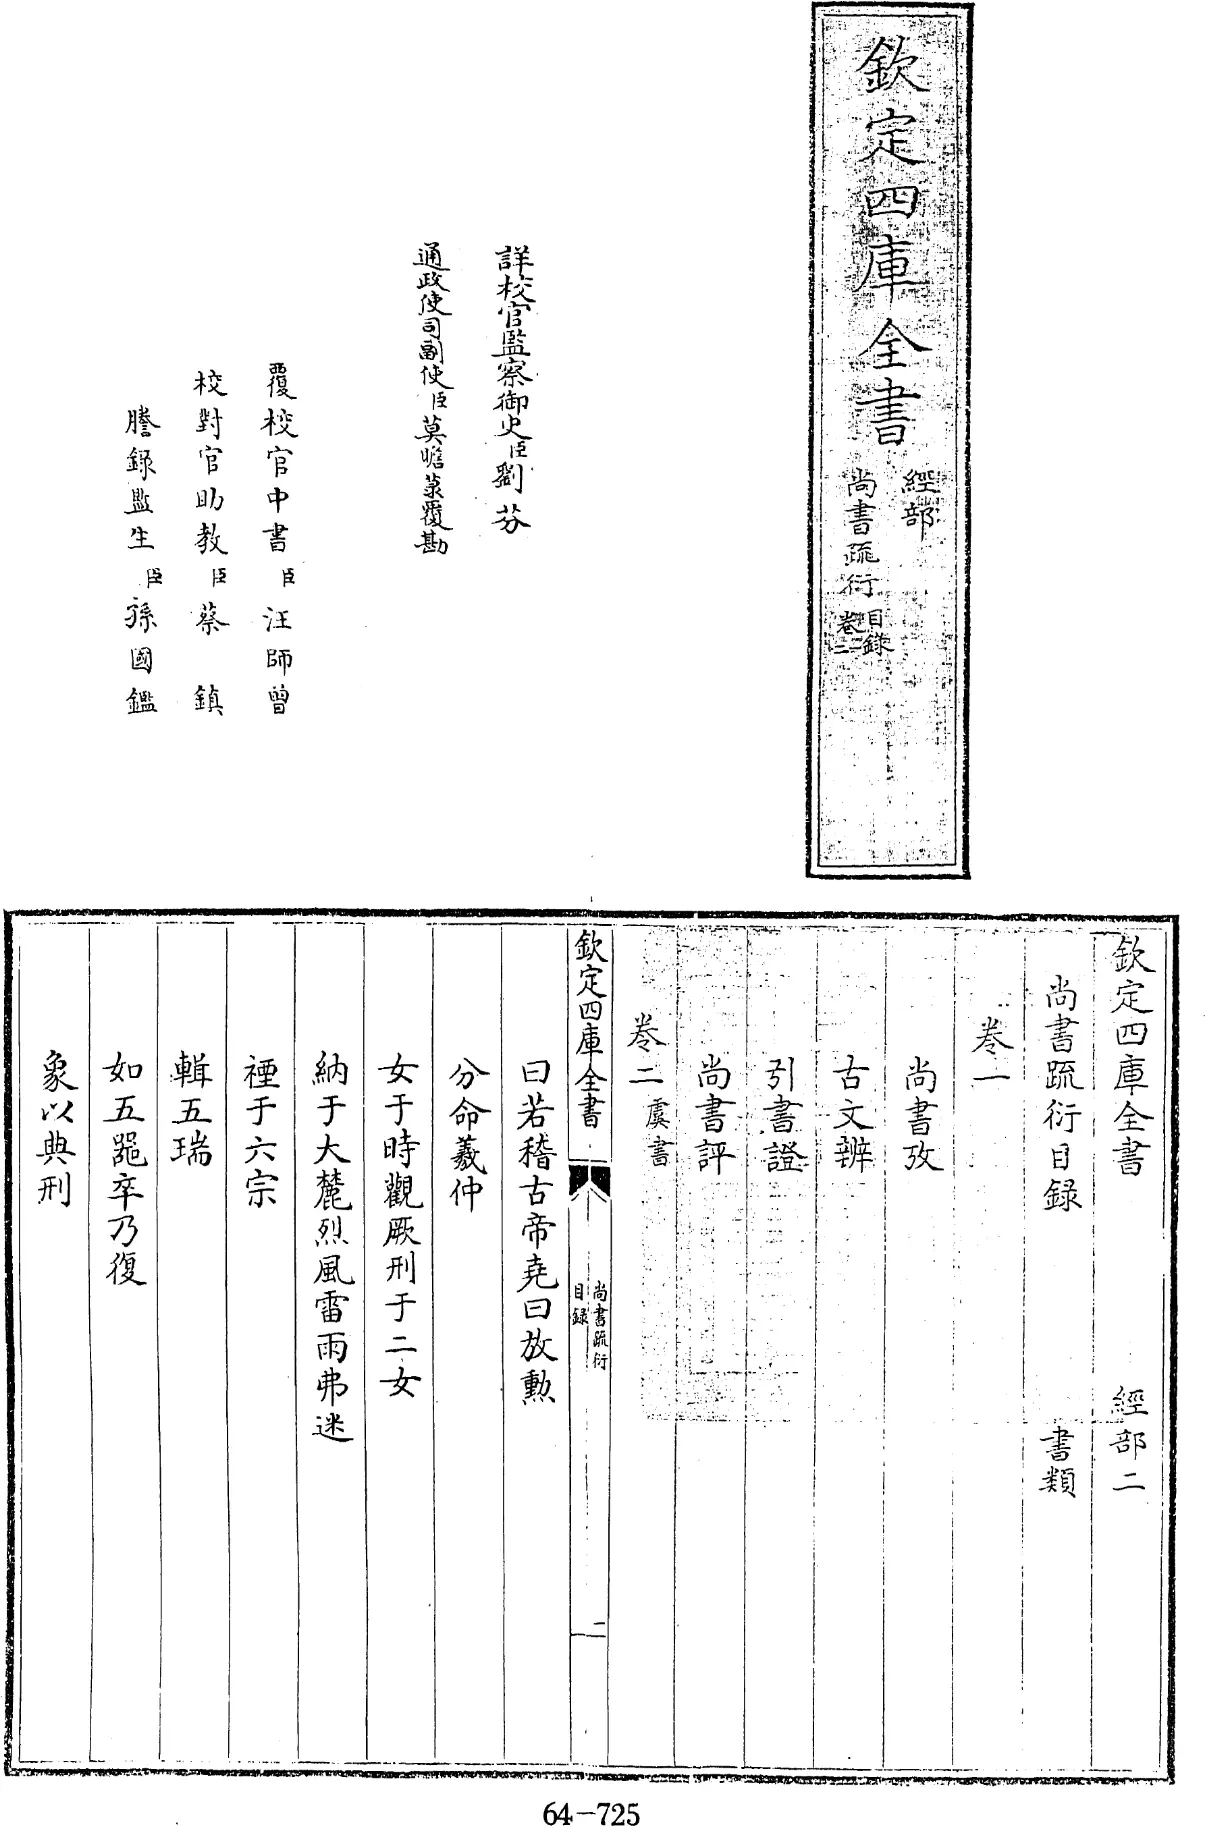 欽定四庫全書
經部
尚書疏衍
目錄
詳校官監察御史臣劉芬
通政使司副使臣莫瞻菉覆勘
覆校官中書臣汪師曾
校對官助教臣蔡鎮
謄錄監生臣孫國鑑
欽定四庫全書 經部二
尚書疏衍目録 書類
卷一
尚書攷
古文辨
引書證
尚書評
卷二 虞書
欽定四庫全書
尚書疏衍
目録
二
曰若稽古帝堯曰放勲
分命羲仲
女于時觀厥刑于二女
納于大麓烈風雷雨弗迷
禋于六宗
輯五瑞
如五器卒乃復
象以典刑
64-725